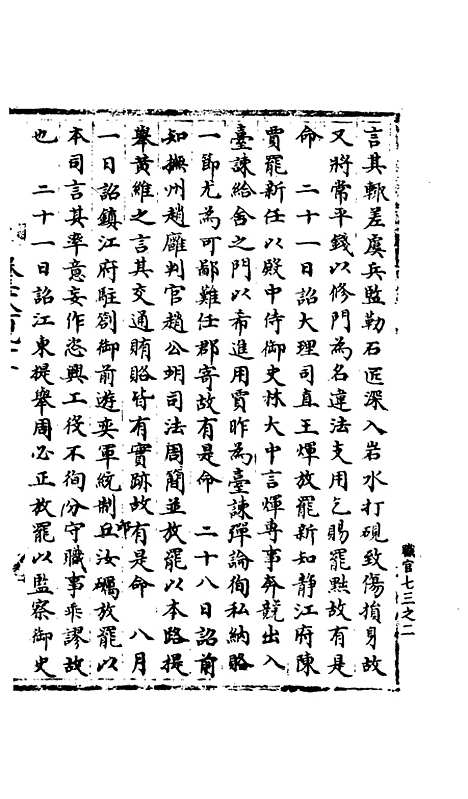 職官七三之二
言其輒差虞兵監勒石匠深入岩水打硯致傷損身故
又將常平錢以修門為名違法支用乞賜罷黜故有是
命　二十一日詔大理司直王煇放罷新知靜江府陳
賈罷新任以殿中侍御史林大中言煇專事奔競出入
臺諫給舍之門以希進用賈昨為臺諫彈論徇私納賂
一節尤為可鄙難任郡寄故有是命　二十八日詔前
知撫州趙𢋨判官趙公明司法周簡並放罷以本路提
舉黃維之言其交通賄賂皆有實跡故有是命　八月
一日詔鎮江府駐劄御前遊奕軍統制丘汝礪放罷以
本司言其率意妄作恣興工役不徇分守職事乖謬故
也　二十一日詔江東提舉周必正放罷以監察御史